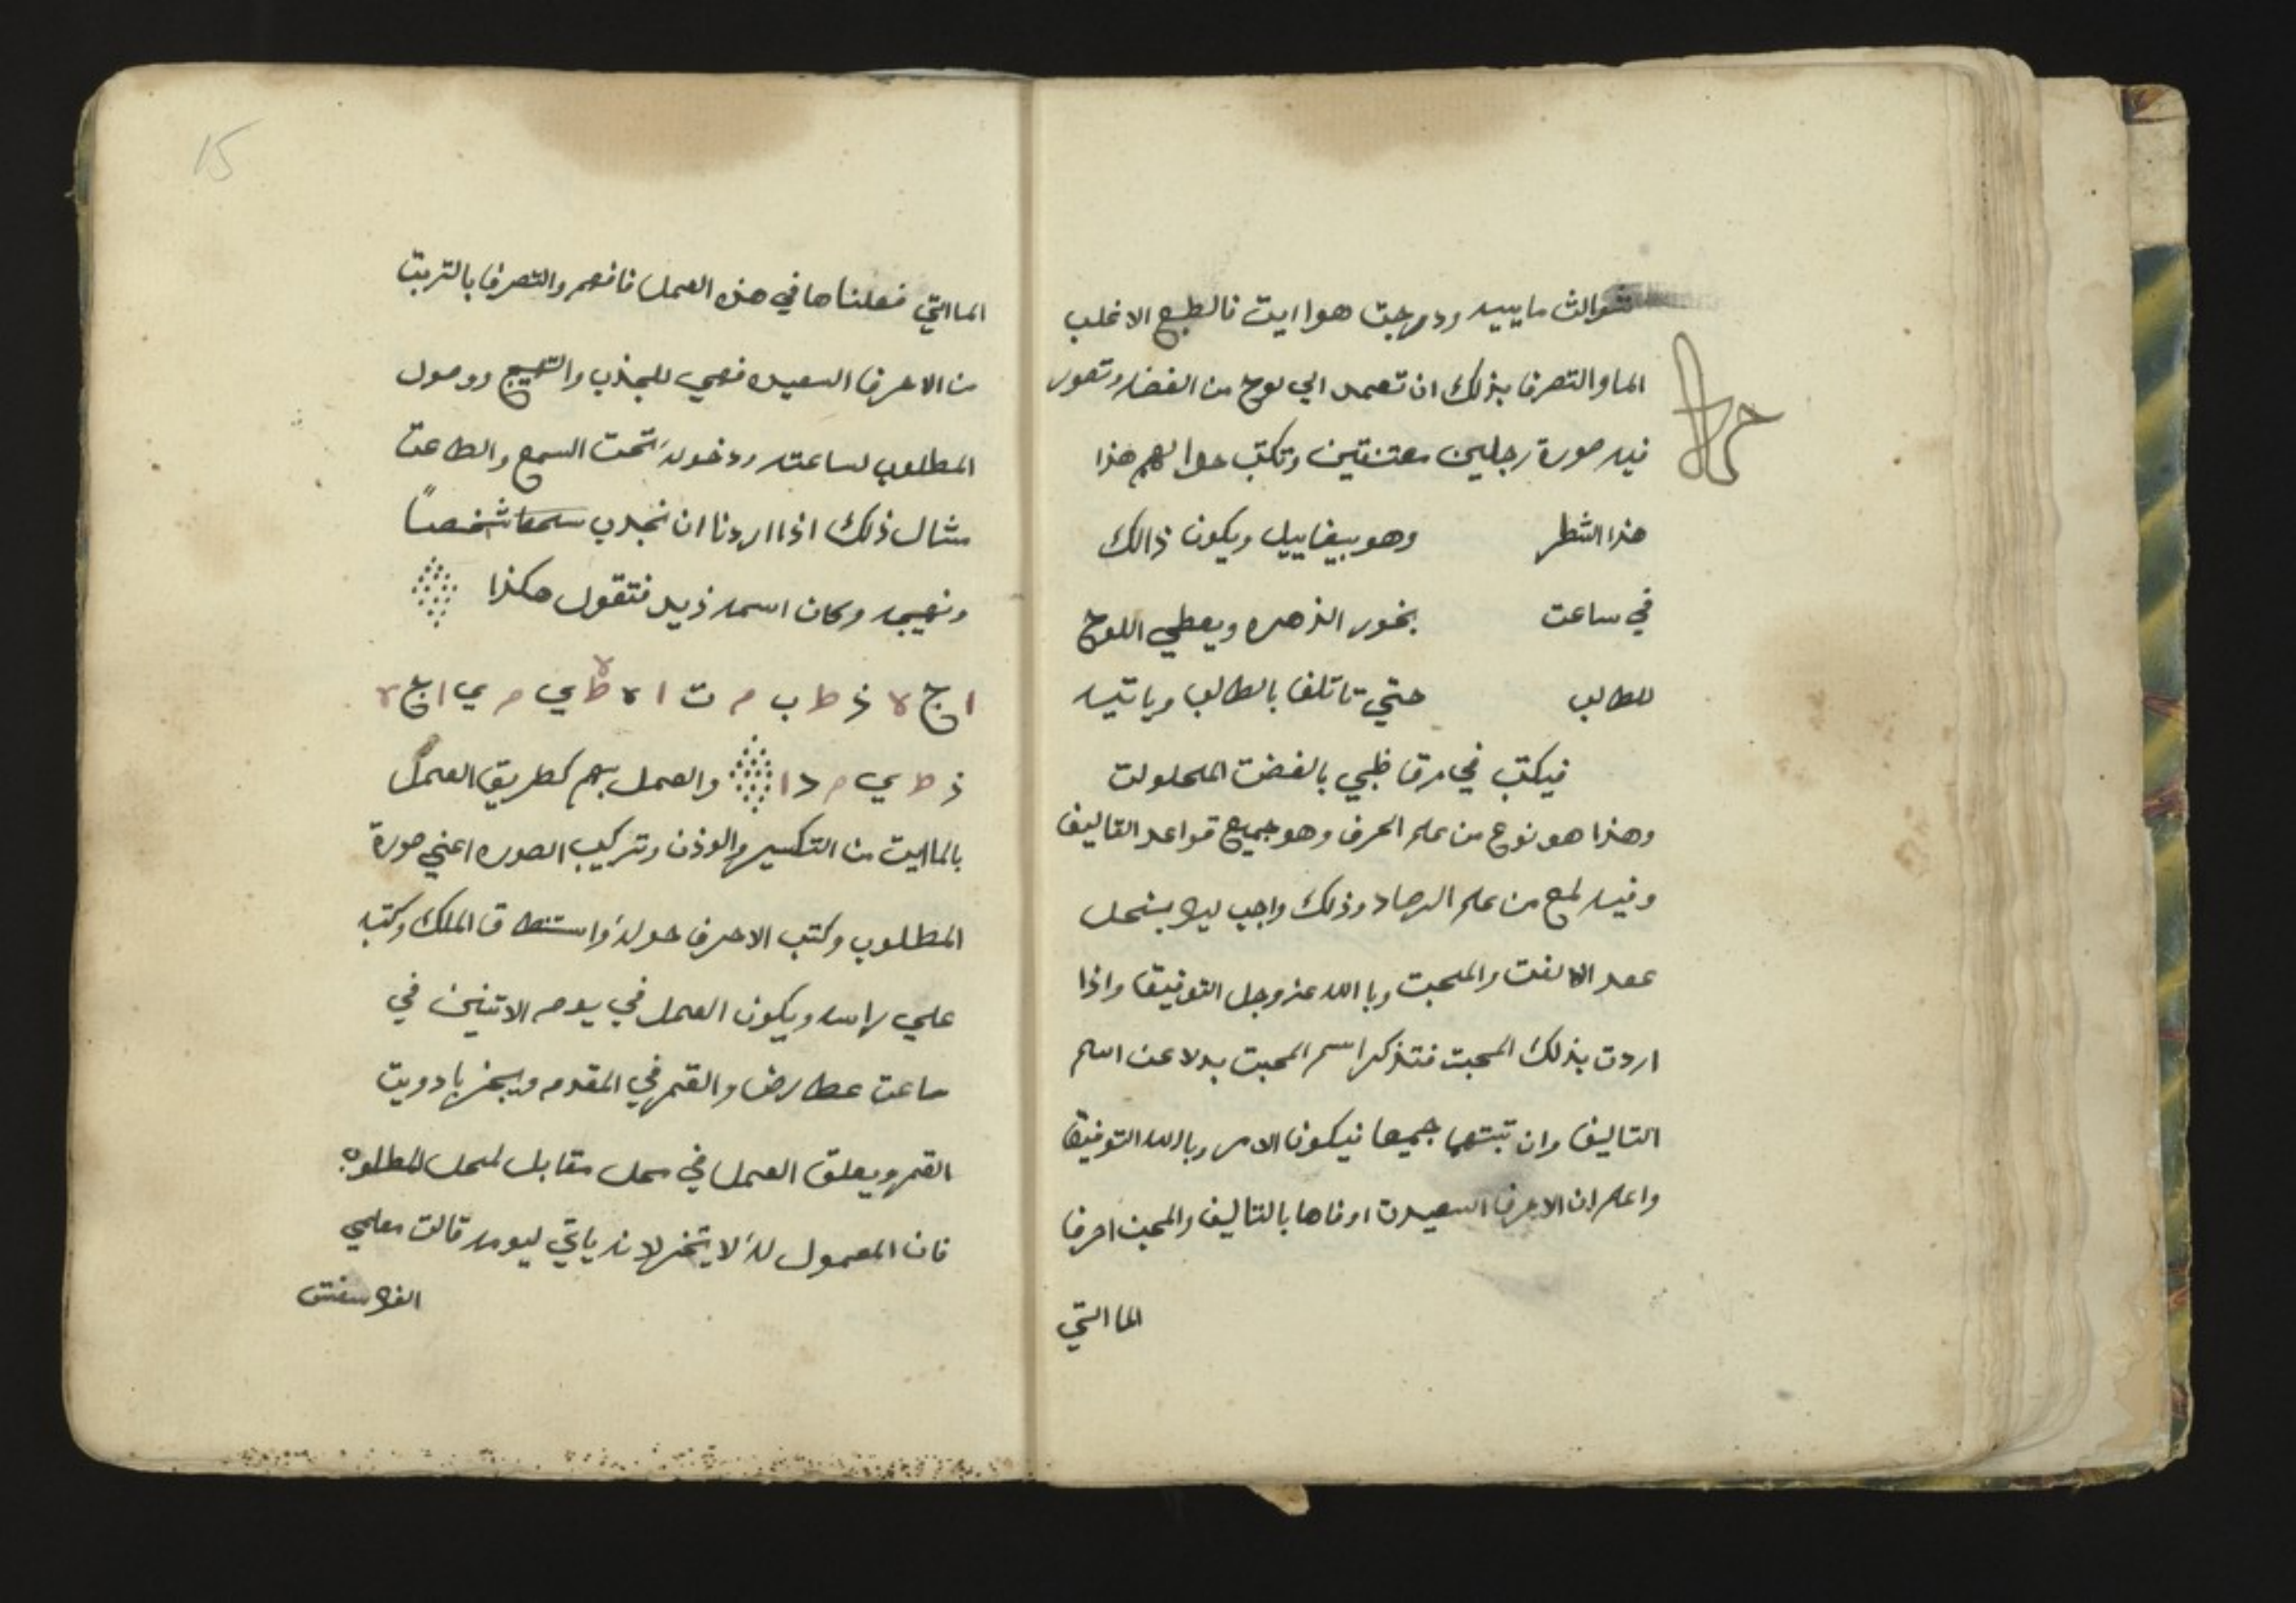 ثوالث ماييه ودرجت هواايت فالطبع الاغلب
الما والتصرف بذلك ان تعمد الي لوح من الفضه وتصور
فيه صورة رجلين معتنقين وتكتب حوالهم هذا
هذا الشطر وهو بيغاييل ويكون ذالك
في ساعت بخور الزهره ويعطي اللوح
للطالب حتي تاتلف بالطالب وياتيه
فيكتب في رق ظبي بالفضت المحلولت
وهذا هو نوع من علم الحرف وهو جميع قواعد التاليف
وفيه لمع من علم الرصاد وذلك واجب ليلا ينحل
عهد الالفت والمحبت وباالله عز وجل التوفيق واذا
اردت بذلك المحبت فتذكر اسم المحبت بدلا عن اسم
التاليف وان تبتهما جميعا فيكون الامر وباالله التوفيق
واعلم ان الاحرف السعيدت اوفاها بالتاليف والمحبت احرف
الما التي
الما التي فعلناها في هذه العمل فافهم والتصرف بالتربت
من الاحرف السعيده فهي للجذب والتهيج ووصول
المطلوب لساعته ودخوله تحت السمع والطاعت
مثال ذلك اذا اردنا ان نجذب شخصاً
ونهيجه وكان اسمه زيد فتقول هكذا
ا ج ه ذ ط ب م ت ا ه ط ه ي م ي ا ج ه
ذ ط ي م د ا والعمل بهم كطريق العمل
بالماايت من التكسير والوذن وتركيب الصوره اعني صورة
المطلوب وكتب الاحرف حوله واستنطاق الملك وكتبه
علي راسه ويكون العمل في يوم الاتنين في
ساعت عطارض والقمر في المقدم ويبخر بادويت
القمر ويعلق العمل في محل مقابل لمحل المطلوب
فان المعمول له لا يتخر لانه ياتي ليومه قالت معلمي
الفلاسفت
15